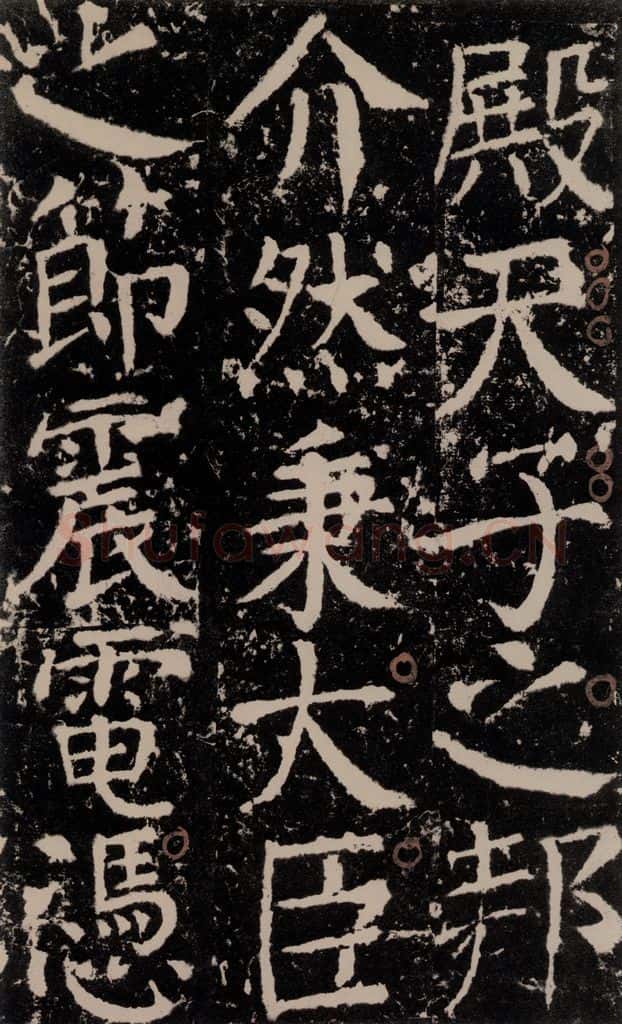 殿天子之邦
介然秉大臣
之節震電憑
Shufawang.CN